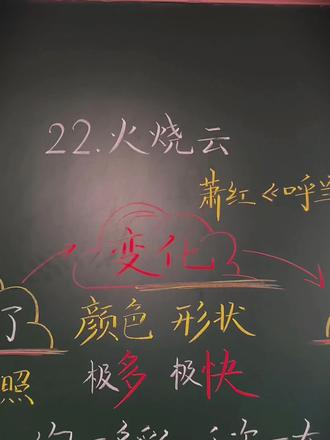 22.火烧云
萧红《呼
变化
了 颜色 形状
照 极多 极快